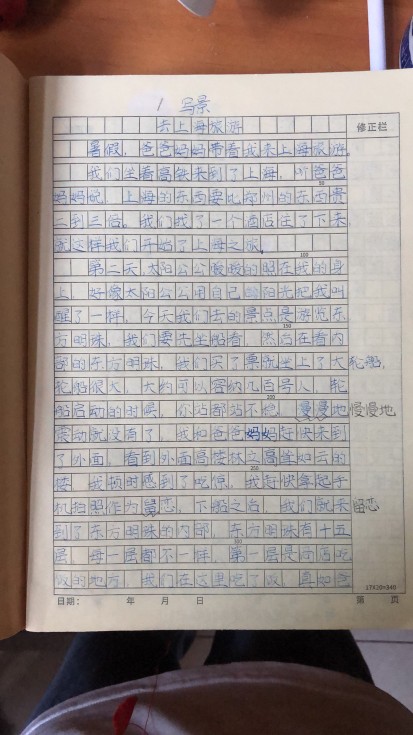 1 写景
去上海旅游
修正栏
暑假，爸爸妈妈带着我来上海旅游。
我们坐着高铁来到了上海，听爸爸
50
妈妈说，上海的东西要比郑州的东西贵
二到三倍。我们找了一个酒店住了下来，
就这样我们开始了上海之旅。
100
第二天，太阳公公暖暖的照在我的身
上，好像太阳公公用自己的阳光把我叫
醒了一样，今天我们去的景点是游览东
150
方明珠，我们要先坐船看，然后在看内
部的东方明珠，我们买了票就坐上了大轮船，
轮船很大，大约可以容纳几百号人，轮
200
船启动的时候，你站都站不稳，慢慢地 慢慢地
震动就没有了，我和爸爸妈妈赶快来到
了外面，看到外面高楼林立高耸如云的
250
楼，我顿时感到了吃惊，我赶快拿起手
机拍照作为留恋，下船之后，我们就来 留恋
到了东方明珠的内部，东方明珠有十五
300
层，每一层都不一样，第一层是 吃
饭的地方，我们在这里吃了饭，
17X20=340
日期： 年 月 日 第 页